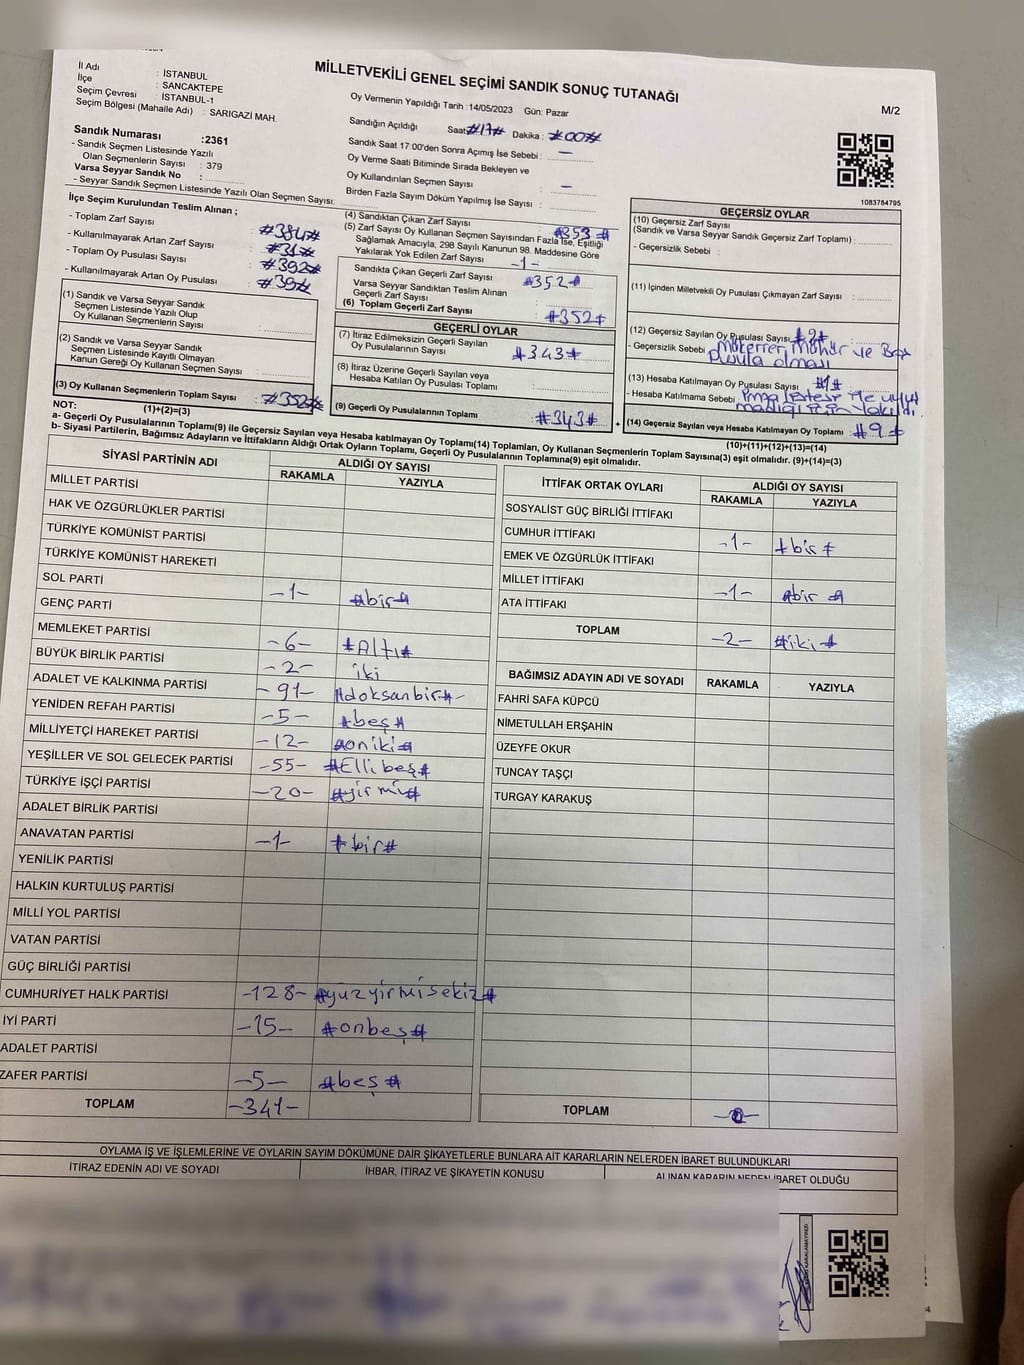 MİLLETVEKİLİ GENEL SEÇİMİ SANDIK SONUÇ TUTANAĞI
M/2
İl Adı : İSTANBUL
İlçe : SANCAKTEPE
Seçim Çevresi : İSTANBUL-1
Seçim Bölgesi (Mahalle Adı) : SARIGAZİ MAH.
Sandık Numarası :2361
- Sandık Seçmen Listesinde Yazılı
Olan Seçmenlerin Sayısı : 379
Varsa Seyyar Sandık No :
- Seyyar Sandık Seçmen Listesinde Yazılı Olan Seçmen Sayısı:
Oy Vermenin Yapıldığı Tarih :14/05/2023 Gün: Pazar
Sandığın Açıldığı Saat #17# Dakika : #00#
Sandık Saat 17:00'den Sonra Açılmış İse Sebebi : —
Oy Verme Saati Bitiminde Sırada Bekleyen ve
Oy Kullandırılan Seçmen Sayısı : —
Birden Fazla Sayım Döküm Yapılmış İse Sayısı :
1083784795
İlçe Seçim Kurulundan Teslim Alınan ;
- Toplam Zarf Sayısı : #384#
- Kullanılmayarak Artan Zarf Sayısı : #31#
- Toplam Oy Pusulası Sayısı : #392#
- Kullanılmayarak Artan Oy Pusulası : #39#
(1) Sandık ve Varsa Seyyar Sandık
Seçmen Listesinde Yazılı Olup
Oy Kullanan Seçmenlerin Sayısı :
(2) Sandık ve Varsa Seyyar Sandık
Seçmen Listesinde Kayıtlı Olmayan
Kanun Gereği Oy Kullanan Seçmen Sayısı :
(3) Oy Kullanan Seçmenlerin Toplam Sayısı : #352#
(1)+(2)=(3)
(4) Sandıktan Çıkan Zarf Sayısı : #353#
(5) Zarf Sayısı Oy Kullanan Seçmen Sayısından Fazla İse, Eşitliği
Sağlamak Amacıyla, 298 Sayılı Kanunun 98. Maddesine Göre
Yakılarak Yok Edilen Zarf Sayısı : -1-
Sandıkta Çıkan Geçerli Zarf Sayısı : #352#
Varsa Seyyar Sandıktan Teslim Alınan
Geçerli Zarf Sayısı :
(6) Toplam Geçerli Zarf Sayısı : #352#
GEÇERLİ OYLAR
(7) İtiraz Edilmeksizin Geçerli Sayılan
Oy Pusulalarının Sayısı : #343#
(8) İtiraz Üzerine Geçerli Sayılan veya
Hesaba Katılan Oy Pusulası Toplamı :
(9) Geçerli Oy Pusulalarının Toplamı : #343#
GEÇERSİZ OYLAR
(10) Geçersiz Zarf Sayısı
(Sandık ve Varsa Seyyar Sandık Geçersiz Zarf Toplamı) :
- Geçersizlik Sebebi :
(11) İçinden Milletvekili Oy Pusulası Çıkmayan Zarf Sayısı :
(12) Geçersiz Sayılan Oy Pusulası Sayısı :
- Geçersizlik Sebebi : Mükerrer, Mühür ve Boş
Pusula olması
(13) Hesaba Katılmayan Oy Pusulası Sayısı : #1#
- Hesaba Katılmama Sebebi : imza listesi ile uyuş
madığı için yakıldı.
(14) Geçersiz Sayılan veya Hesaba Katılmayan Oy Toplamı : #9#
(10)+(11)+(12)+(13)=(14)
NOT:
a- Geçerli Oy Pusulalarının Toplamı(9) ile Geçersiz Sayılan veya Hesaba katılmayan Oy Toplamı(14) Toplamları, Oy Kullanan Seçmenlerin Toplam Sayısına(3) eşit olmalıdır. (9)+(14)=(3)
b- Siyasi Partilerin, Bağımsız Adayların ve İttifakların Aldığı Ortak Oyların Toplamı, Geçerli Oy Pusulalarının Toplamına(9) eşit olmalıdır.
SİYASİ PARTİNİN ADI ALDIĞI OY SAYISI
RAKAMLA YAZIYLA
MİLLET PARTİSİ
HAK VE ÖZGÜRLÜKLER PARTİSİ
TÜRKİYE KOMÜNİST PARTİSİ
TÜRKİYE KOMÜNİST HAREKETİ
SOL PARTİ -1- #bir#
GENÇ PARTİ
MEMLEKET PARTİSİ -6- #Altı#
BÜYÜK BİRLİK PARTİSİ -2- iki
ADALET VE KALKINMA PARTİSİ -91- #doksanbir#-
YENİDEN REFAH PARTİSİ -5- #beş#
MİLLİYETÇİ HAREKET PARTİSİ -12- #oniki#
YEŞİLLER VE SOL GELECEK PARTİSİ -55- #Ellibeş#
TÜRKİYE İŞÇİ PARTİSİ -20- #yirmi#
ADALET BİRLİK PARTİSİ
ANAVATAN PARTİSİ -1- #bir#
YENİLİK PARTİSİ
HALKIN KURTULUŞ PARTİSİ
MİLLİ YOL PARTİSİ
VATAN PARTİSİ
GÜÇ BİRLİĞİ PARTİSİ
CUMHURİYET HALK PARTİSİ -128- #yüzyirmisekiz#
İYİ PARTİ -15- #onbeş#
ADALET PARTİSİ
ZAFER PARTİSİ -5- #beş#
TOPLAM -341-
İTTİFAK ORTAK OYLARI ALDIĞI OY SAYISI
RAKAMLA YAZIYLA
SOSYALİST GÜÇ BİRLİĞİ İTTİFAKI
CUMHUR İTTİFAKI -1- #bir#
EMEK VE ÖZGÜRLÜK İTTİFAKI
MİLLET İTTİFAKI -1- #bir#
ATA İTTİFAKI
TOPLAM -2- #iki#
BAĞIMSIZ ADAYIN ADI VE SOYADI RAKAMLA YAZIYLA
FAHRİ SAFA KÜPCÜ
NİMETULLAH ERŞAHİN
ÜZEYFE OKUR
TUNCAY TAŞÇI
TURGAY KARAKUŞ
TOPLAM
OYLAMA İŞ VE İŞLEMLERİNE VE OYLARIN SAYIM DÖKÜMÜNE DAİR ŞİKAYETLERLE BUNLARA AİT KARARLARIN NELERDEN İBARET BULUNDUKLARI
İTİRAZ EDENİN ADI VE SOYADI İHBAR, İTİRAZ VE ŞİKAYETİN KONUSU ALINAN KARARIN NEDEN İBARET OLDUĞU